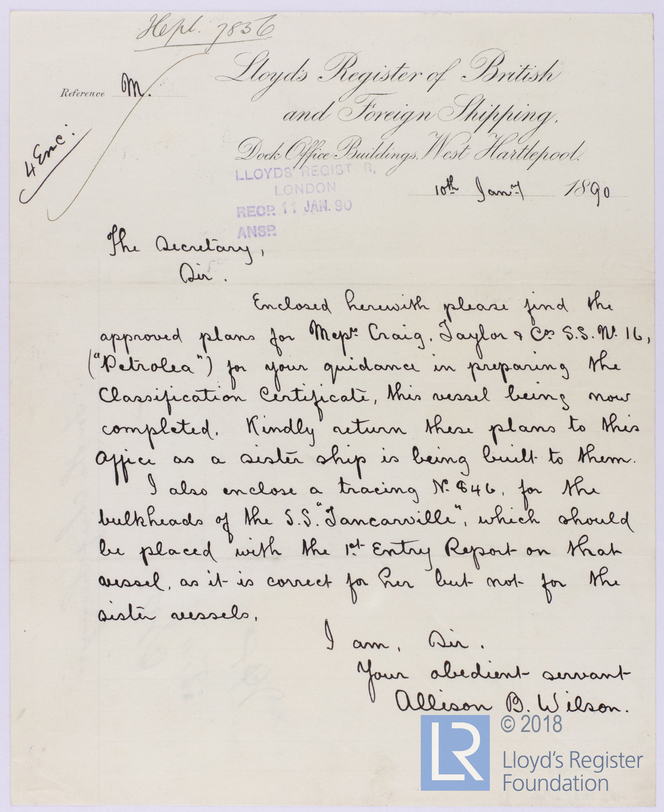 Hepl. 7856
Lloyd's Register of British
Reference M.
and Foreign Shipping.
4 Enc:
Dock Office Buildings, West Hartlepool.
LLOYDS' REGISTER,
LONDON
RECP. 11 JAN. 90
ANSD.
10th Jany 1890
The Secretary,
Sir.
Enclosed herewith please find the
approved plans for Messrs Craig, Taylor & Cos S.S. No 16,
("Petrolea") for your guidance in preparing the
Classification Certificate, this vessel being now
completed. Kindly return these plans to this
Office as a sister ship is being built to them.
I also enclose a tracing No 846, for the
bulkheads of the S.S. "Tancarville", which should
be placed with the 1st Entry Report on that
vessel, as it is correct for her but not for the
sister vessels.
I am, Sir.
Your obedient servant
Allison B. Wilson.
LR
© 2018
Lloyd's Register
Foundation